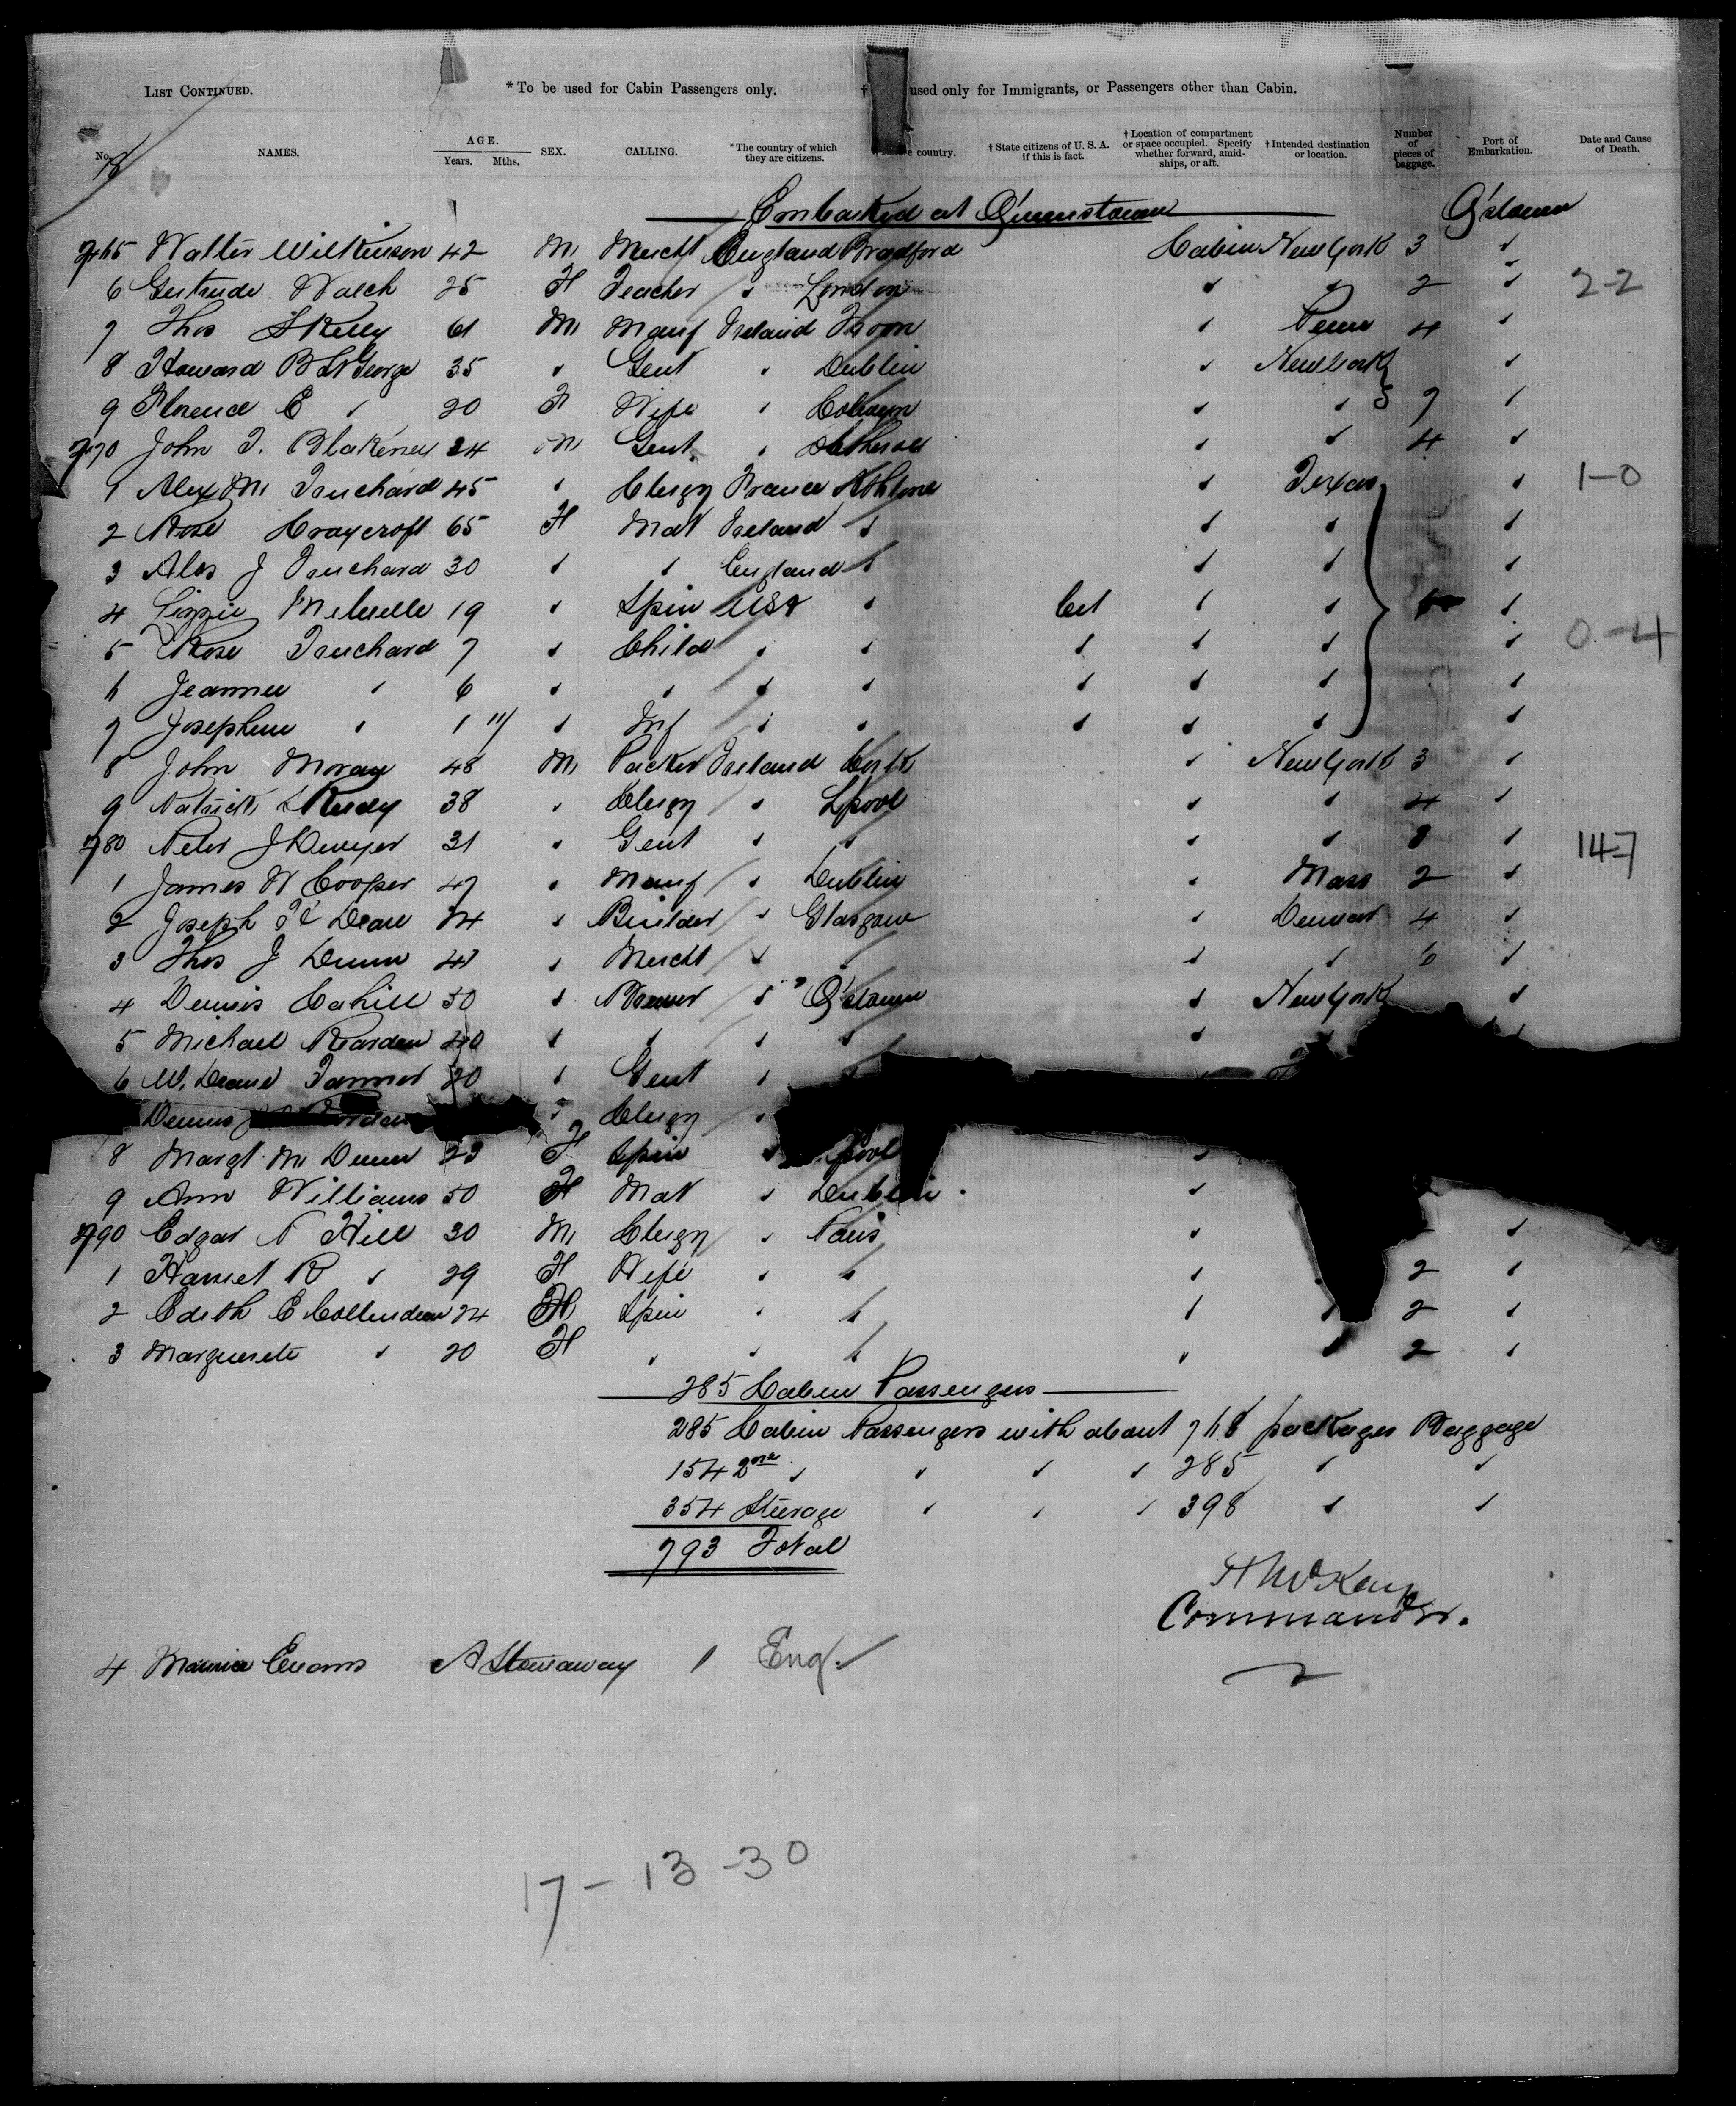 LIST CONTINUED. *To be used for Cabin Passengers only. † used only for Immigrants, or Passengers other than Cabin.
No. NAMES. AGE. Years. Mths. SEX. CALLING. *The country of which they are citizens. country. † State citizens of U. S. A. if this is fact. † Location of compartment or space occupied. Specify whether forward, amidships, or aft. † Intended destination or location. Number of pieces of baggage. Port of Embarkation. Date and Cause of Death.
18
Embarked at Queenstown Q'stown
765 Walter Wilkinson 42 M Mercht England Bradford Cabin New York 3 "
6 Gertrude Walch 25 F Teacher " London " " 2 " 2-2
7 Thos S Kelly 61 M Manuf Ireland " 4 "
8 Howard B St George 35 " Gent " Dublin " New York "
9 Florence E " 20 F Wife " " " 7 "
770 John T. Blakeney 24 M Gent " " " 4 "
1 Alex M 45 " Clergy France " Texas " 1-0
2 Rose Craycroft 65 F Mat Ireland " " " "
3 J 30 " " England " " " "
4 Lizzie 19 " Spin USA " Cit " " "
5 Rose 7 " Child " " " " " " 0-4
6 " 6 " " " " " " " "
7 Josephine " 1 11/ " Inf " " " " " "
8 John Moray 48 M Packer Ireland Cork " New York 3 "
9 Patrick 38 " Clergy " Lpool " " 4 "
780 Peter J Dwyer 31 " Gent " " " " 8 " 14-7
1 James W Cooper 47 " Manuf " Dublin " Mass 2 "
2 Joseph Dean 24 " Builder " Glasgow " Denver 4 "
3 Thos J Dunn 47 " Mercht " " " " 6 "
4 Dennis Cahill 50 " " Q'stown " New York "
5 Michael Reardon 40 " " " " " "
6 W. Deane Tanner 20 " Gent " "
Dennis " Clergy "
8 Margt M Dunn 23 F Spin " pool "
9 Ann Williams 50 F Mat " Dublin "
790 Edgar P Hill 30 M Clergy " Paris " "
1 Harriet R " 29 F Wife " " " 2 "
2 Edith E Collender 24 F Spin " " " " 2 "
3 Marguerite " 20 F " " " " " 2 "
285 Cabin Passengers
285 Cabin Passengers with about 768 packages Baggage
154 2nd " " " " 285 " "
354 Steerage " " " 398 " "
793 Total
H McKay
Commander.
4 Maurice Evans A Stowaway 1 Eng.
17 - 13 - 30